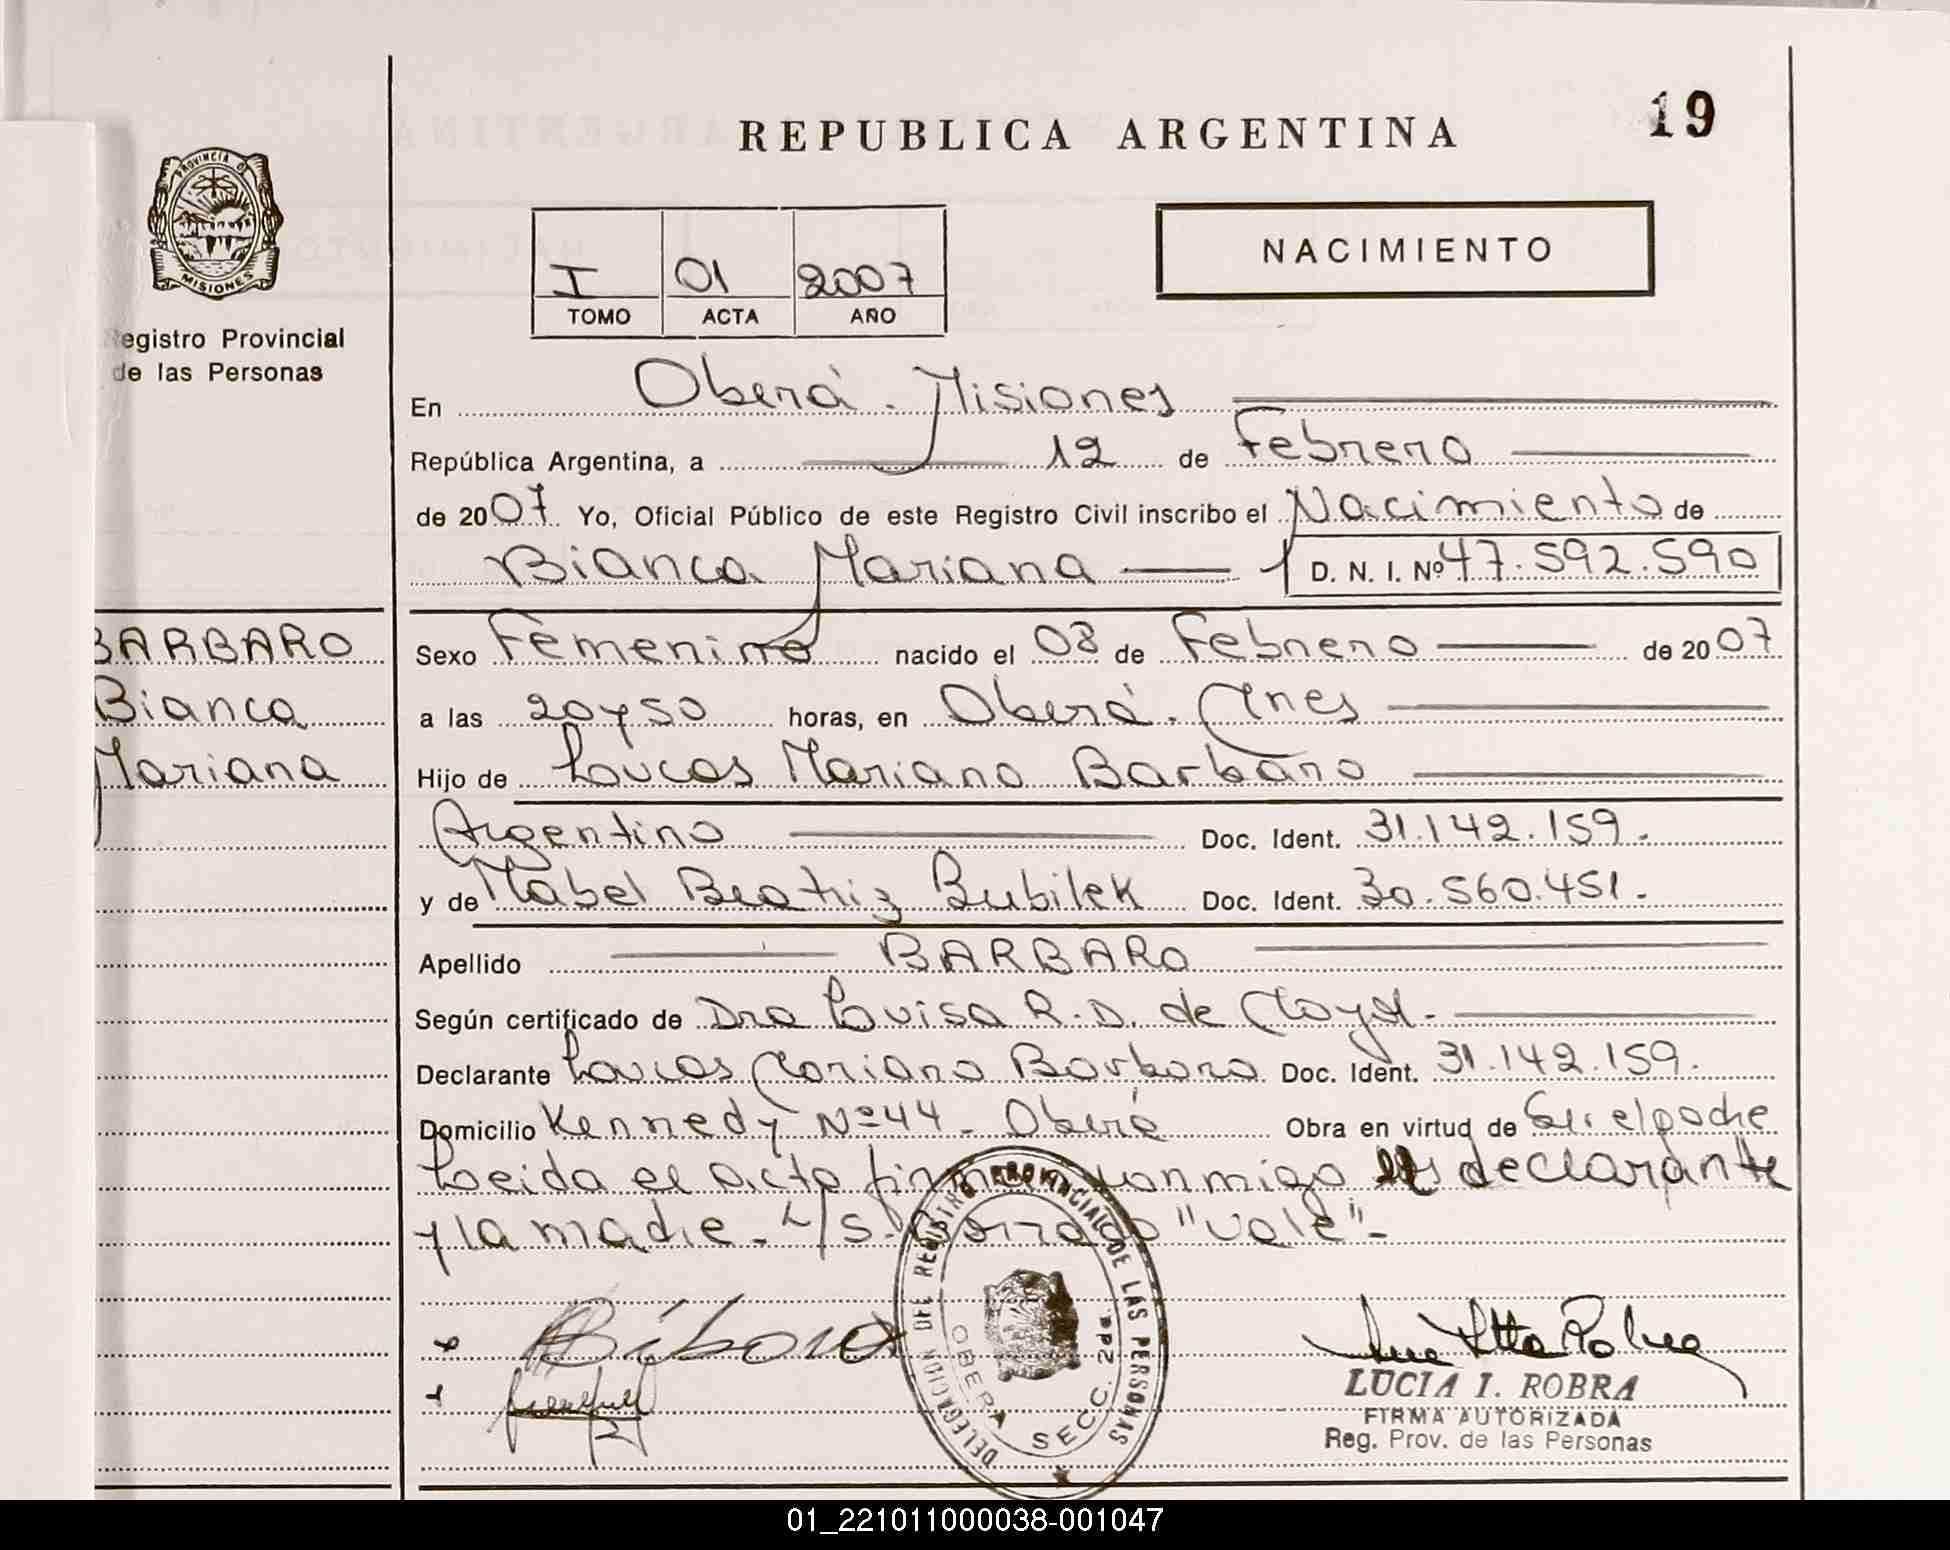 19
REPUBLICA ARGENTINA
PROVINCIA DE
MISIONES
Registro Provincial
de las Personas
NACIMIENTO
I 01 2007
TOMO ACTA AÑO
En Oberá - Misiones
República Argentina, a 12 de Febrero
de 2007 Yo, Oficial Público de este Registro Civil inscribo el Nacimiento de
Bianca Mariana D. N. I. Nº 47.592.590
BARBARO
Bianca
Mariana
Sexo Femenino nacido el 08 de Febrero de 2007
a las 20y50 horas, en Oberá.
Hijo de Loucas Mariano Barbaro
Argentino Doc. Ident. 31.142.159.
y de Mabel Beatriz Bubilek Doc. Ident. 30.560.451.
Apellido BARBARO
Según certificado de Dra Louisa R. D. de
Declarante Loucas Mariano Barbaro Doc. Ident. 31.142.159.
Domicilio Kennedy Nº 44 - Oberá Obra en virtud de el padre
Leida el acta firman conmigo declarante
y la madre. - "Vale" -
DELEGACION DEL REGISTRO PROVINCIAL DE LAS PERSONAS
OBERA SECC. 2da.
LUCIA I. ROBRA
FIRMA AUTORIZADA
Reg. Prov. de las Personas
01_221011000038-001047